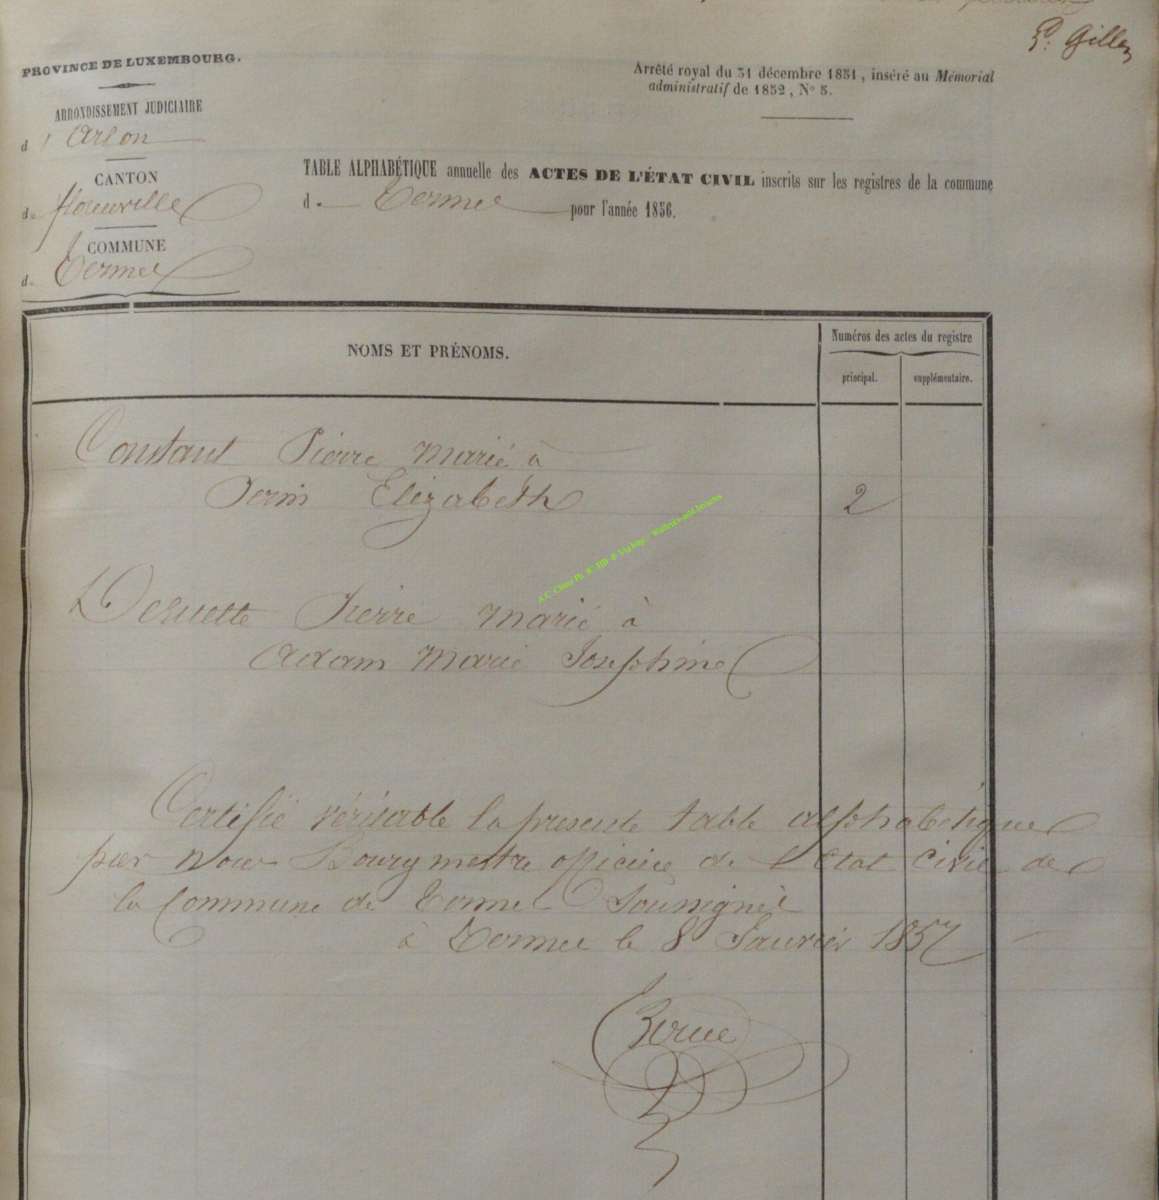 P. Gillen
PROVINCE DE LUXEMBOURG.
ARRONDISSEMENT JUDICIAIRE
d' Arlon
CANTON
de florenville
COMMUNE
de Termes
Arrêté royal du 31 décembre 1851, inséré au Mémorial
administratif de 1852, No 5.
TABLE ALPHABÉTIQUE annuelle des ACTES DE L'ÉTAT CIVIL inscrits sur les registres de la commune
de Termes pour l'année 1856.
NOMS ET PRÉNOMS.
Numéros des actes du registre
principal. supplémentaire.
Constant Pierre marié à
Elizabeth 2
Pierre marié à
Adam Marie Josephine
Certifié véritable la presente table alphabetique
par nous Bourgmestre officier de l'Etat Civil de
la Commune de Termes Soussigné
à Termes le 8 Janvier 1857